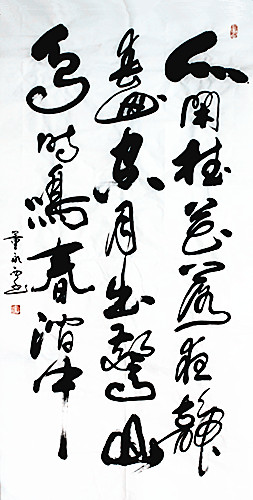 人閑桂花落夜静
春山空月出驚山
鳥時鳴春澗中